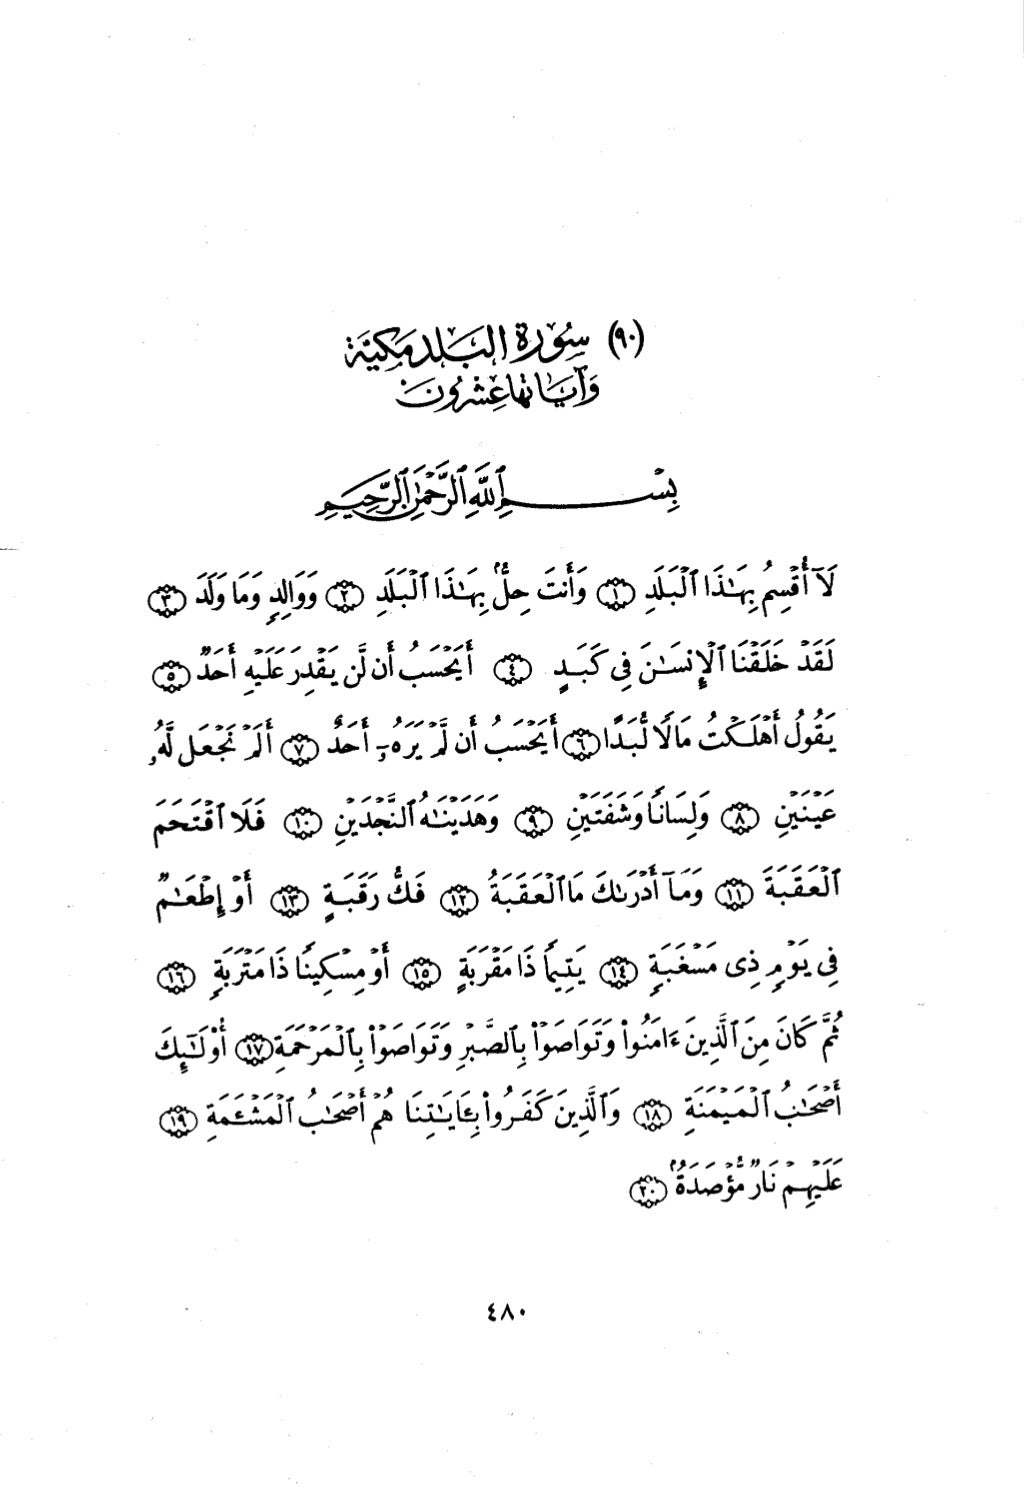 (٩٠) سُورَة البَلَد مَكيَّة
وَآيَاتهَا عِشرُونَ
بِسۡمِ ٱللَّهِ ٱلرَّحۡمَٰنِ ٱلرَّحِيمِ
لَآ أُقۡسِمُ بِهَٰذَا ٱلۡبَلَدِ ١ وَأَنتَ حِلُّۢ بِهَٰذَا ٱلۡبَلَدِ ٢ وَوَالِدٖ وَمَا وَلَدَ ٣
لَقَدۡ خَلَقۡنَا ٱلۡإِنسَٰنَ فِي كَبَدٍ ٤ أَيَحۡسَبُ أَن لَّن يَقۡدِرَ عَلَيۡهِ أَحَدٞ ٥
يَقُولُ أَهۡلَكۡتُ مَالٗا لُّبَدًا ٦ أَيَحۡسَبُ أَن لَّمۡ يَرَهُۥٓ أَحَدٌ ٧ أَلَمۡ نَجۡعَل لَّهُۥ
عَيۡنَيۡنِ ٨ وَلِسَانٗا وَشَفَتَيۡنِ ٩ وَهَدَيۡنَٰهُ ٱلنَّجۡدَيۡنِ ١٠ فَلَا ٱقۡتَحَمَ
ٱلۡعَقَبَةَ ١١ وَمَآ أَدۡرَىٰكَ مَا ٱلۡعَقَبَةُ ١٢ فَكُّ رَقَبَةٍ ١٣ أَوۡ إِطۡعَٰمٞ
فِي يَوۡمٖ ذِي مَسۡغَبَةٖ ١٤ يَتِيمٗا ذَا مَقۡرَبَةٍ ١٥ أَوۡ مِسۡكِينٗا ذَا مَتۡرَبَةٖ ١٦
ثُمَّ كَانَ مِنَ ٱلَّذِينَ ءَامَنُواْ وَتَوَاصَوۡاْ بِٱلصَّبۡرِ وَتَوَاصَوۡاْ بِٱلۡمَرۡحَمَةِ ١٧ أُوْلَٰٓئِكَ
أَصۡحَٰبُ ٱلۡمَيۡمَنَةِ ١٨ وَٱلَّذِينَ كَفَرُواْ بِـَٔايَٰتِنَا هُمۡ أَصۡحَٰبُ ٱلۡمَشۡـَٔمَةِ ١٩
عَلَيۡهِمۡ نَارٞ مُّؤۡصَدَةُۢ ٢٠
٤٨٠